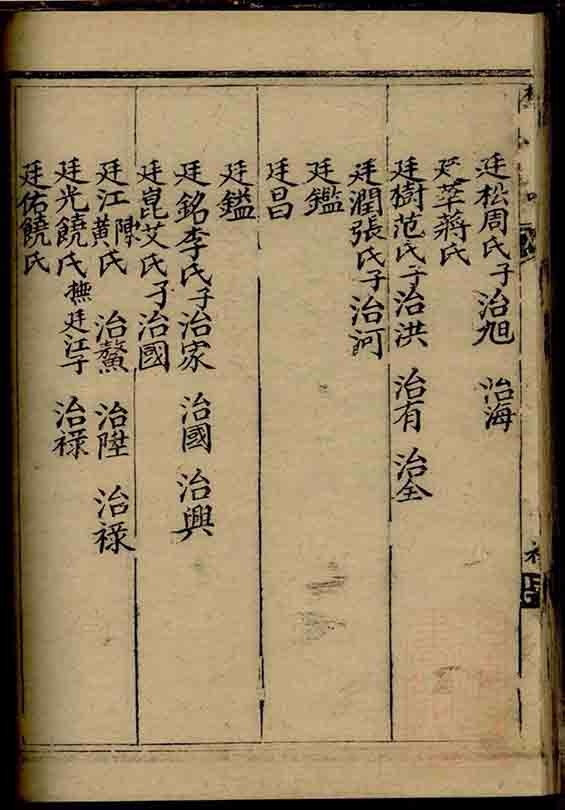 廷松周氏子治旭 治海
廷萃蔣氏
廷樹范氏子治洪 治有 治全
廷潤張氏子治河
廷鑑
廷昌
廷鎰
廷銘李氏子治家 治國 治興
廷崑艾氏子治國
廷江陳黃氏 治鰲 治陞 治祿
廷光饒氏撫廷江子 治祿
廷佑饒氏